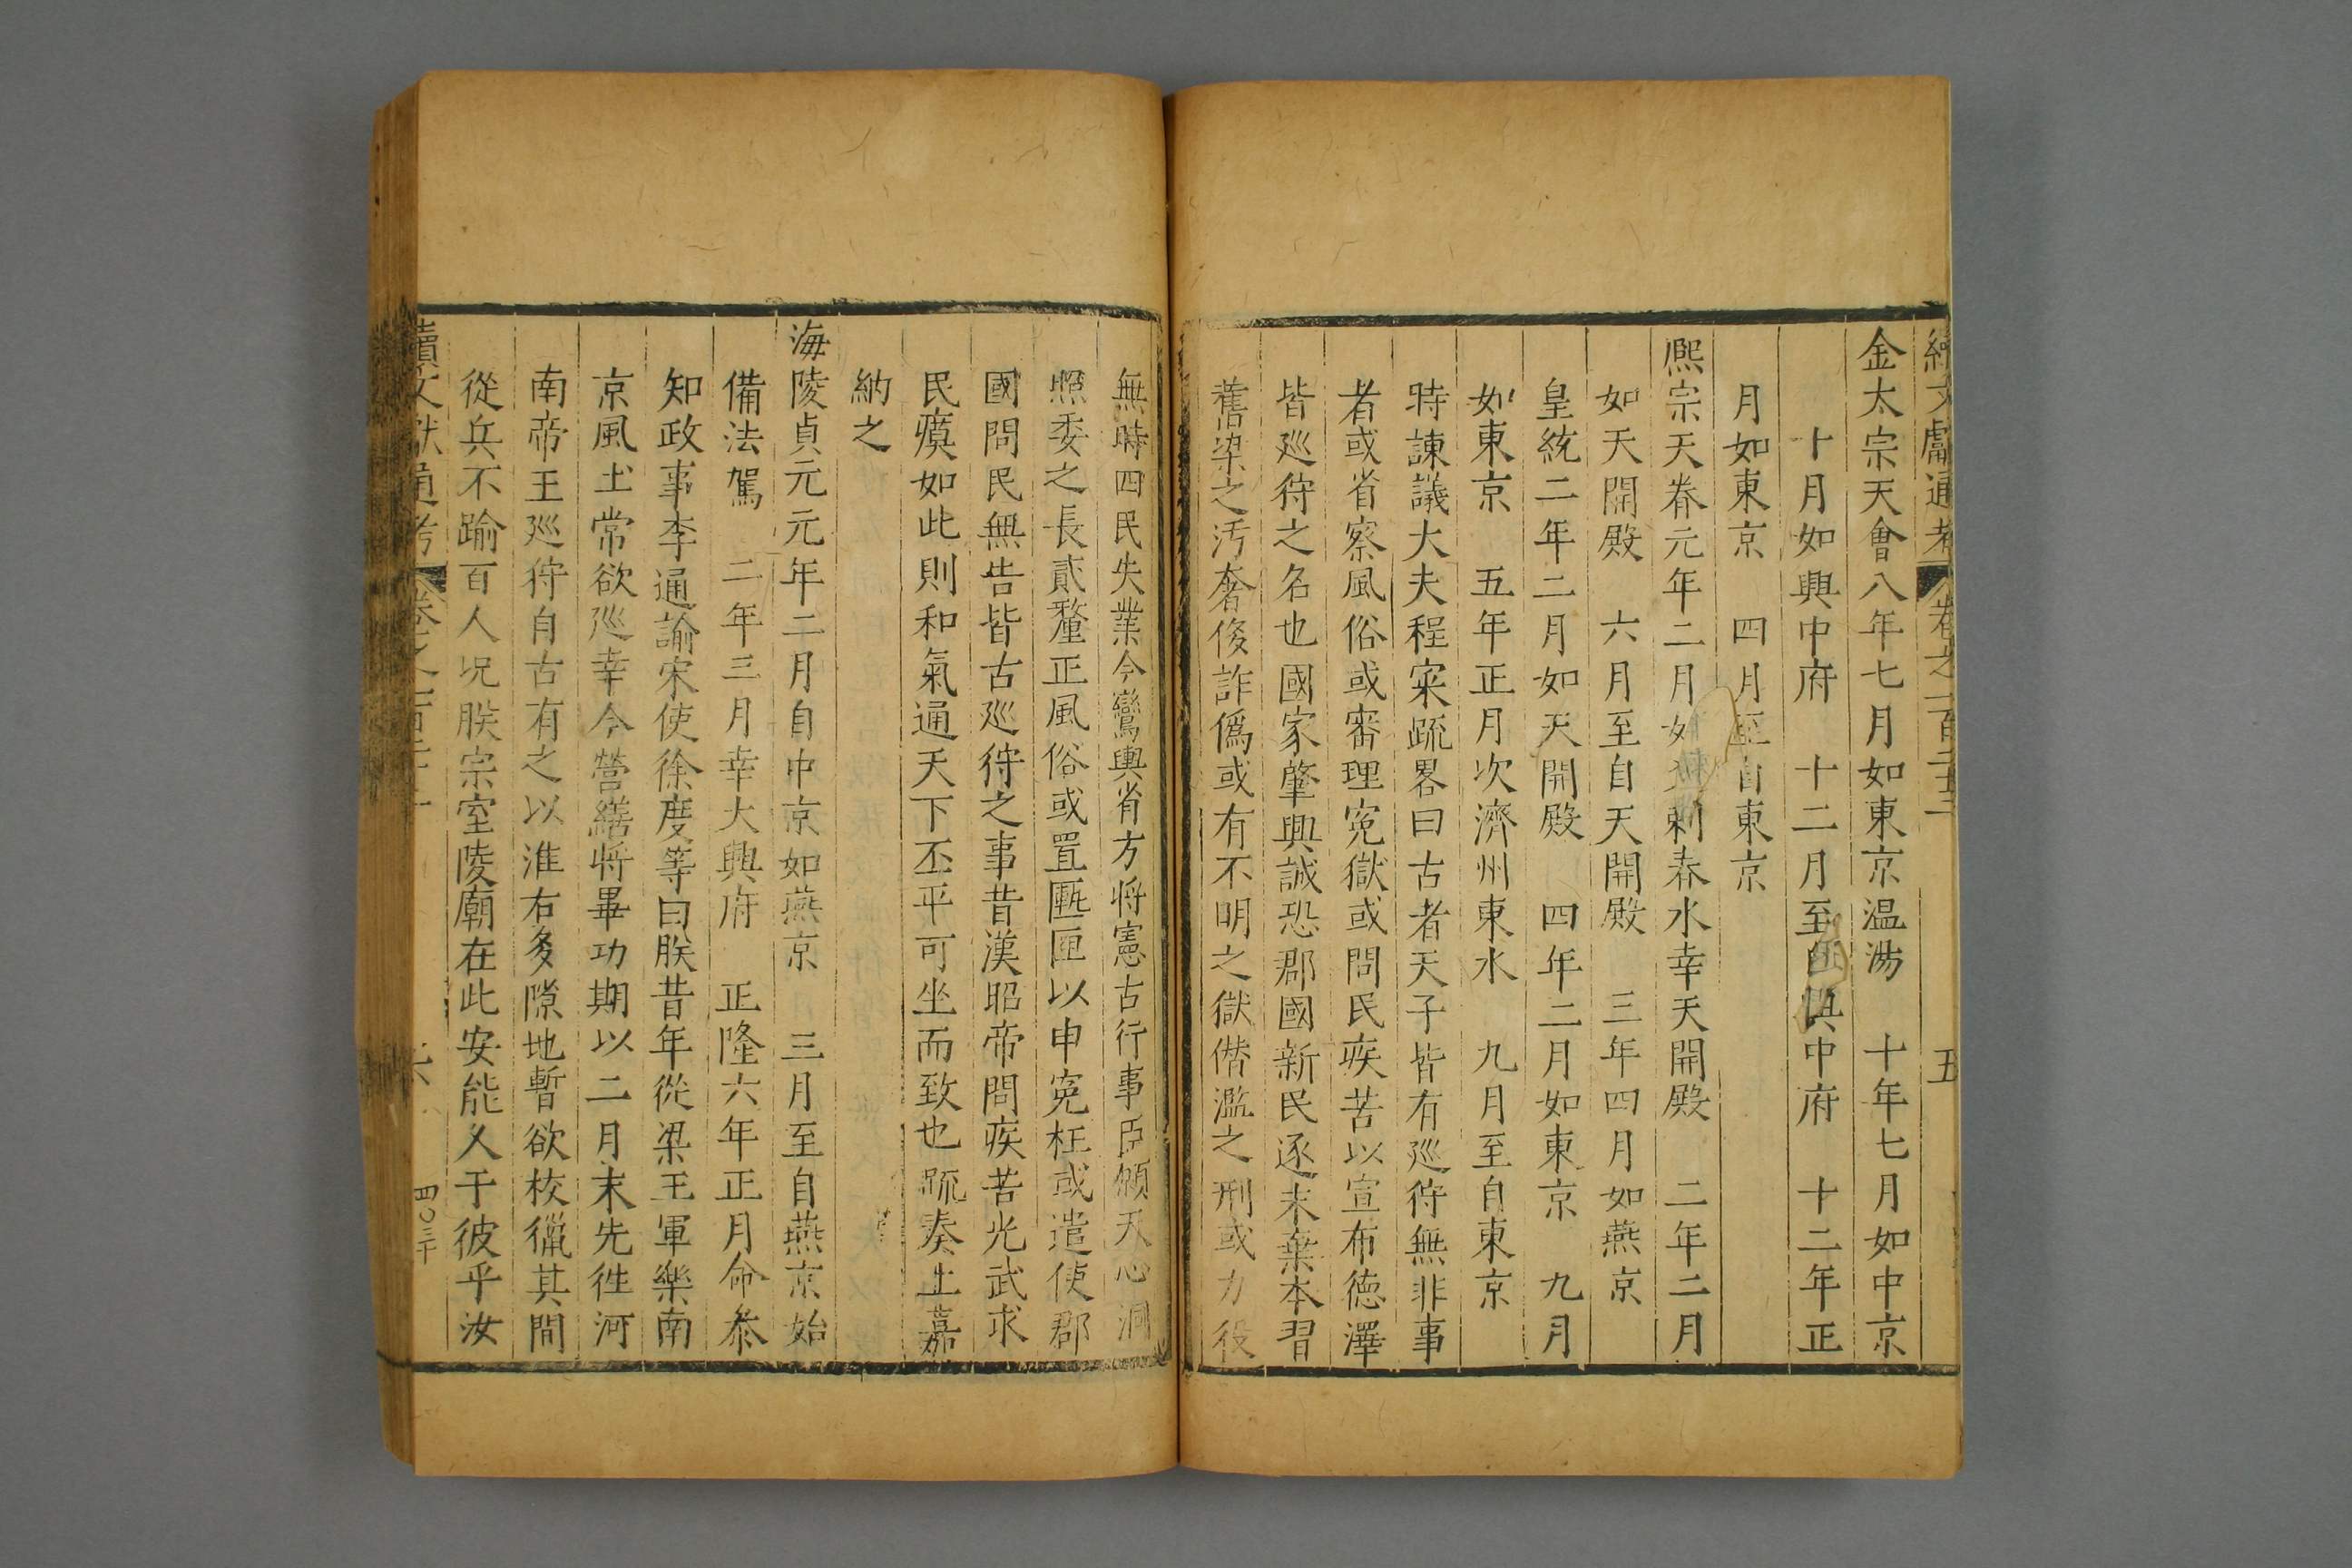 續文獻通考 卷之一百二十 五
金太宗天會八年七月如東京温湯 十年七月如中京
十月如興中府 十二月至自興中府 十二年正
月如東京 四月至自東京
熈宗天眷元年二月如剌春水幸天開殿 二年二月
如天開殿 六月至自天開殿 三年四月如燕京
皇統二年二月如天開殿 四年二月如東京 九月
如東京 五年正月次濟州東水 九月至自東京
時諫議大夫程寀䟽畧曰古者天子皆有廵狩無非事
者或省察風俗或審理寃獄或問民疾苦以宣布德澤
皆廵狩之名也國家肇興誠恐郡國新民逐末棄本習
舊染之汚奢侈詐僞或有不明之獄僭濫之刑或力役
無時四民失業今鸞輿省方將憲古行事臣願天心洞
照委之長貳釐正風俗或置匭匣以申寃枉或遣使郡
國問民無告皆古廵狩之事昔漢昭帝問疾苦光武求
民瘼如此則和氣通天下丕平可坐而致也䟽奏上嘉
納之
海陵貞元元年二月自中京如燕京 三月至自燕京始
備法駕 二年三月幸大興府 正隆六年正月命叅
知政事李通諭宋使徐度等曰朕昔年從梁王軍樂南
京風土常欲廵幸今營繕將畢功期以二月末先徃河
南帝王廵狩自古有之以淮右多隙地暫欲校獵其間
從兵不踰百人况朕宗室陵廟在此安能久于彼乎汝
續文獻通考 六